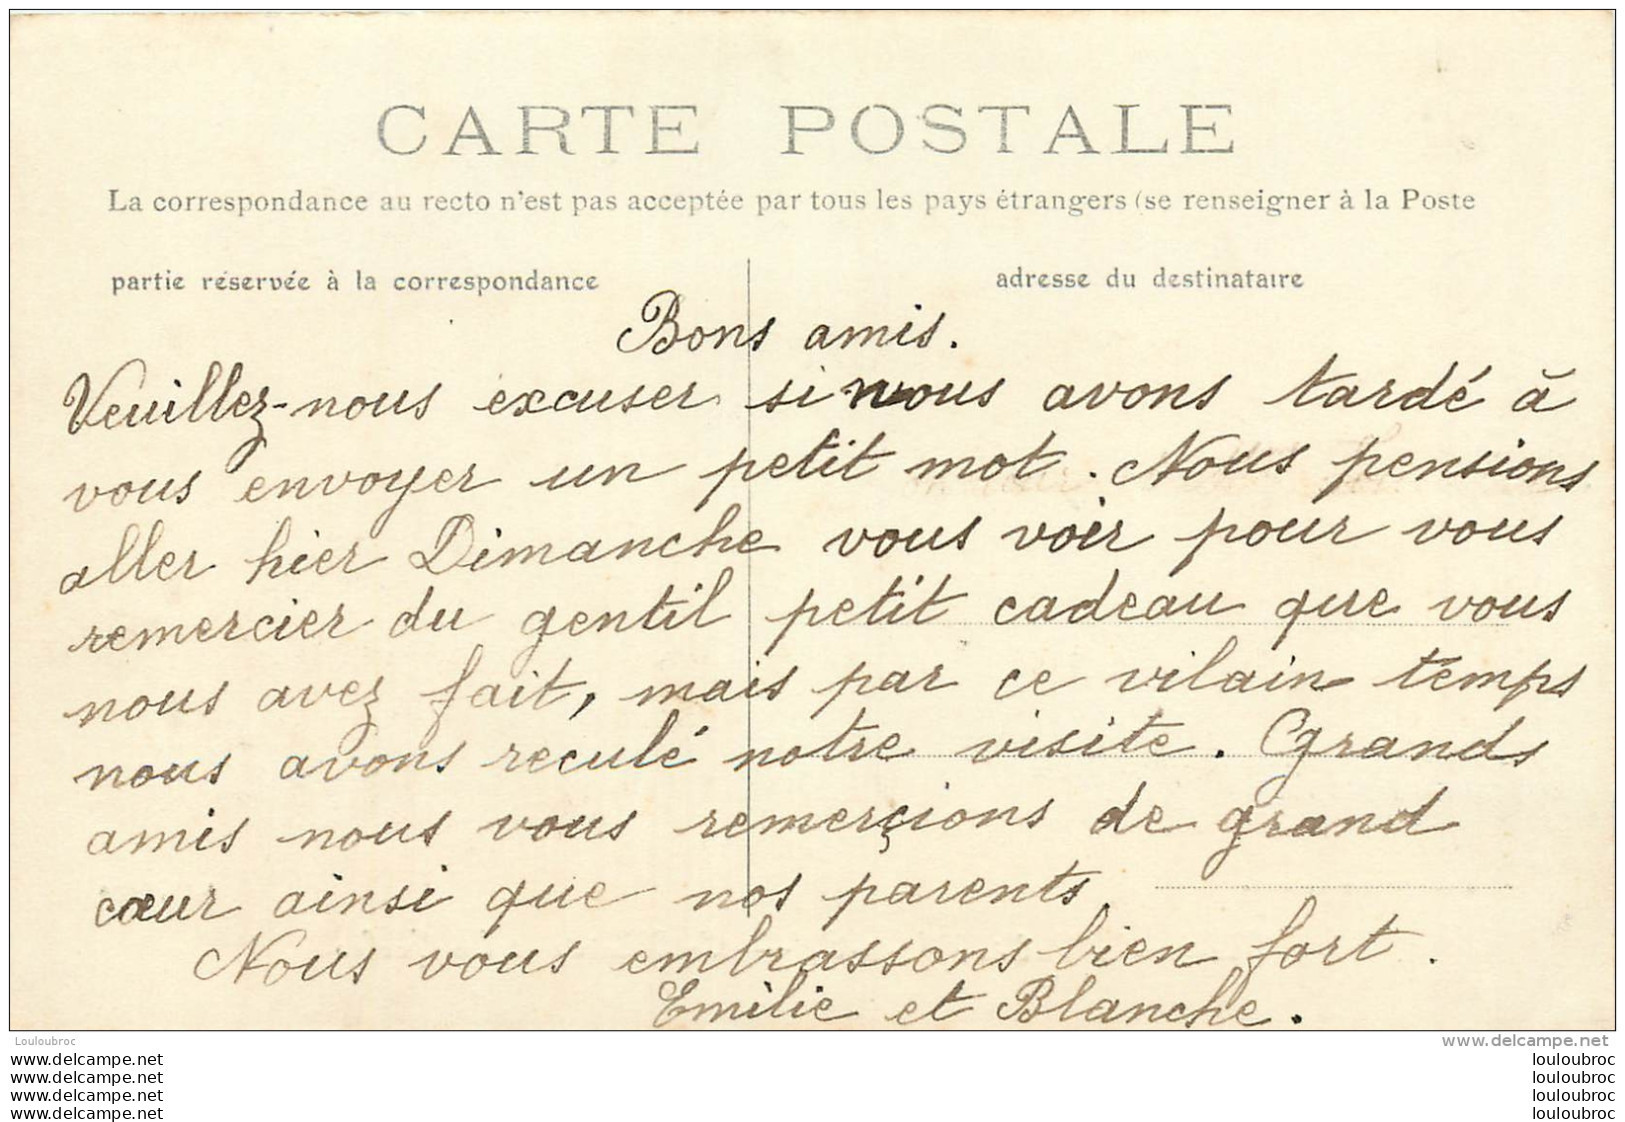 CARTE POSTALE
La correspondance au recto n'est pas acceptée par tous les pays étrangers (se renseigner à la Poste
partie réservée à la correspondance
adresse du destinataire
Bons amis.
Veuillez-nous excuser si nous avons tardé à
vous envoyer un petit mot. Nous pensions
aller hier Dimanche vous voir pour vous
remercier du gentil petit cadeau que vous
nous avez fait, mais par ce vilain temps
nous avons reculé notre visite. Grands
amis nous vous remerçions de grand
cœur ainsi que nos parents
Nous vous embrassons bien fort.
Emilie et Blanche.
Louloubroc
www.delcampe.net
www.delcampe.net
www.delcampe.net
www.delcampe.net
www.delcampe.net
louloubroc
louloubroc
louloubroc
louloubroc